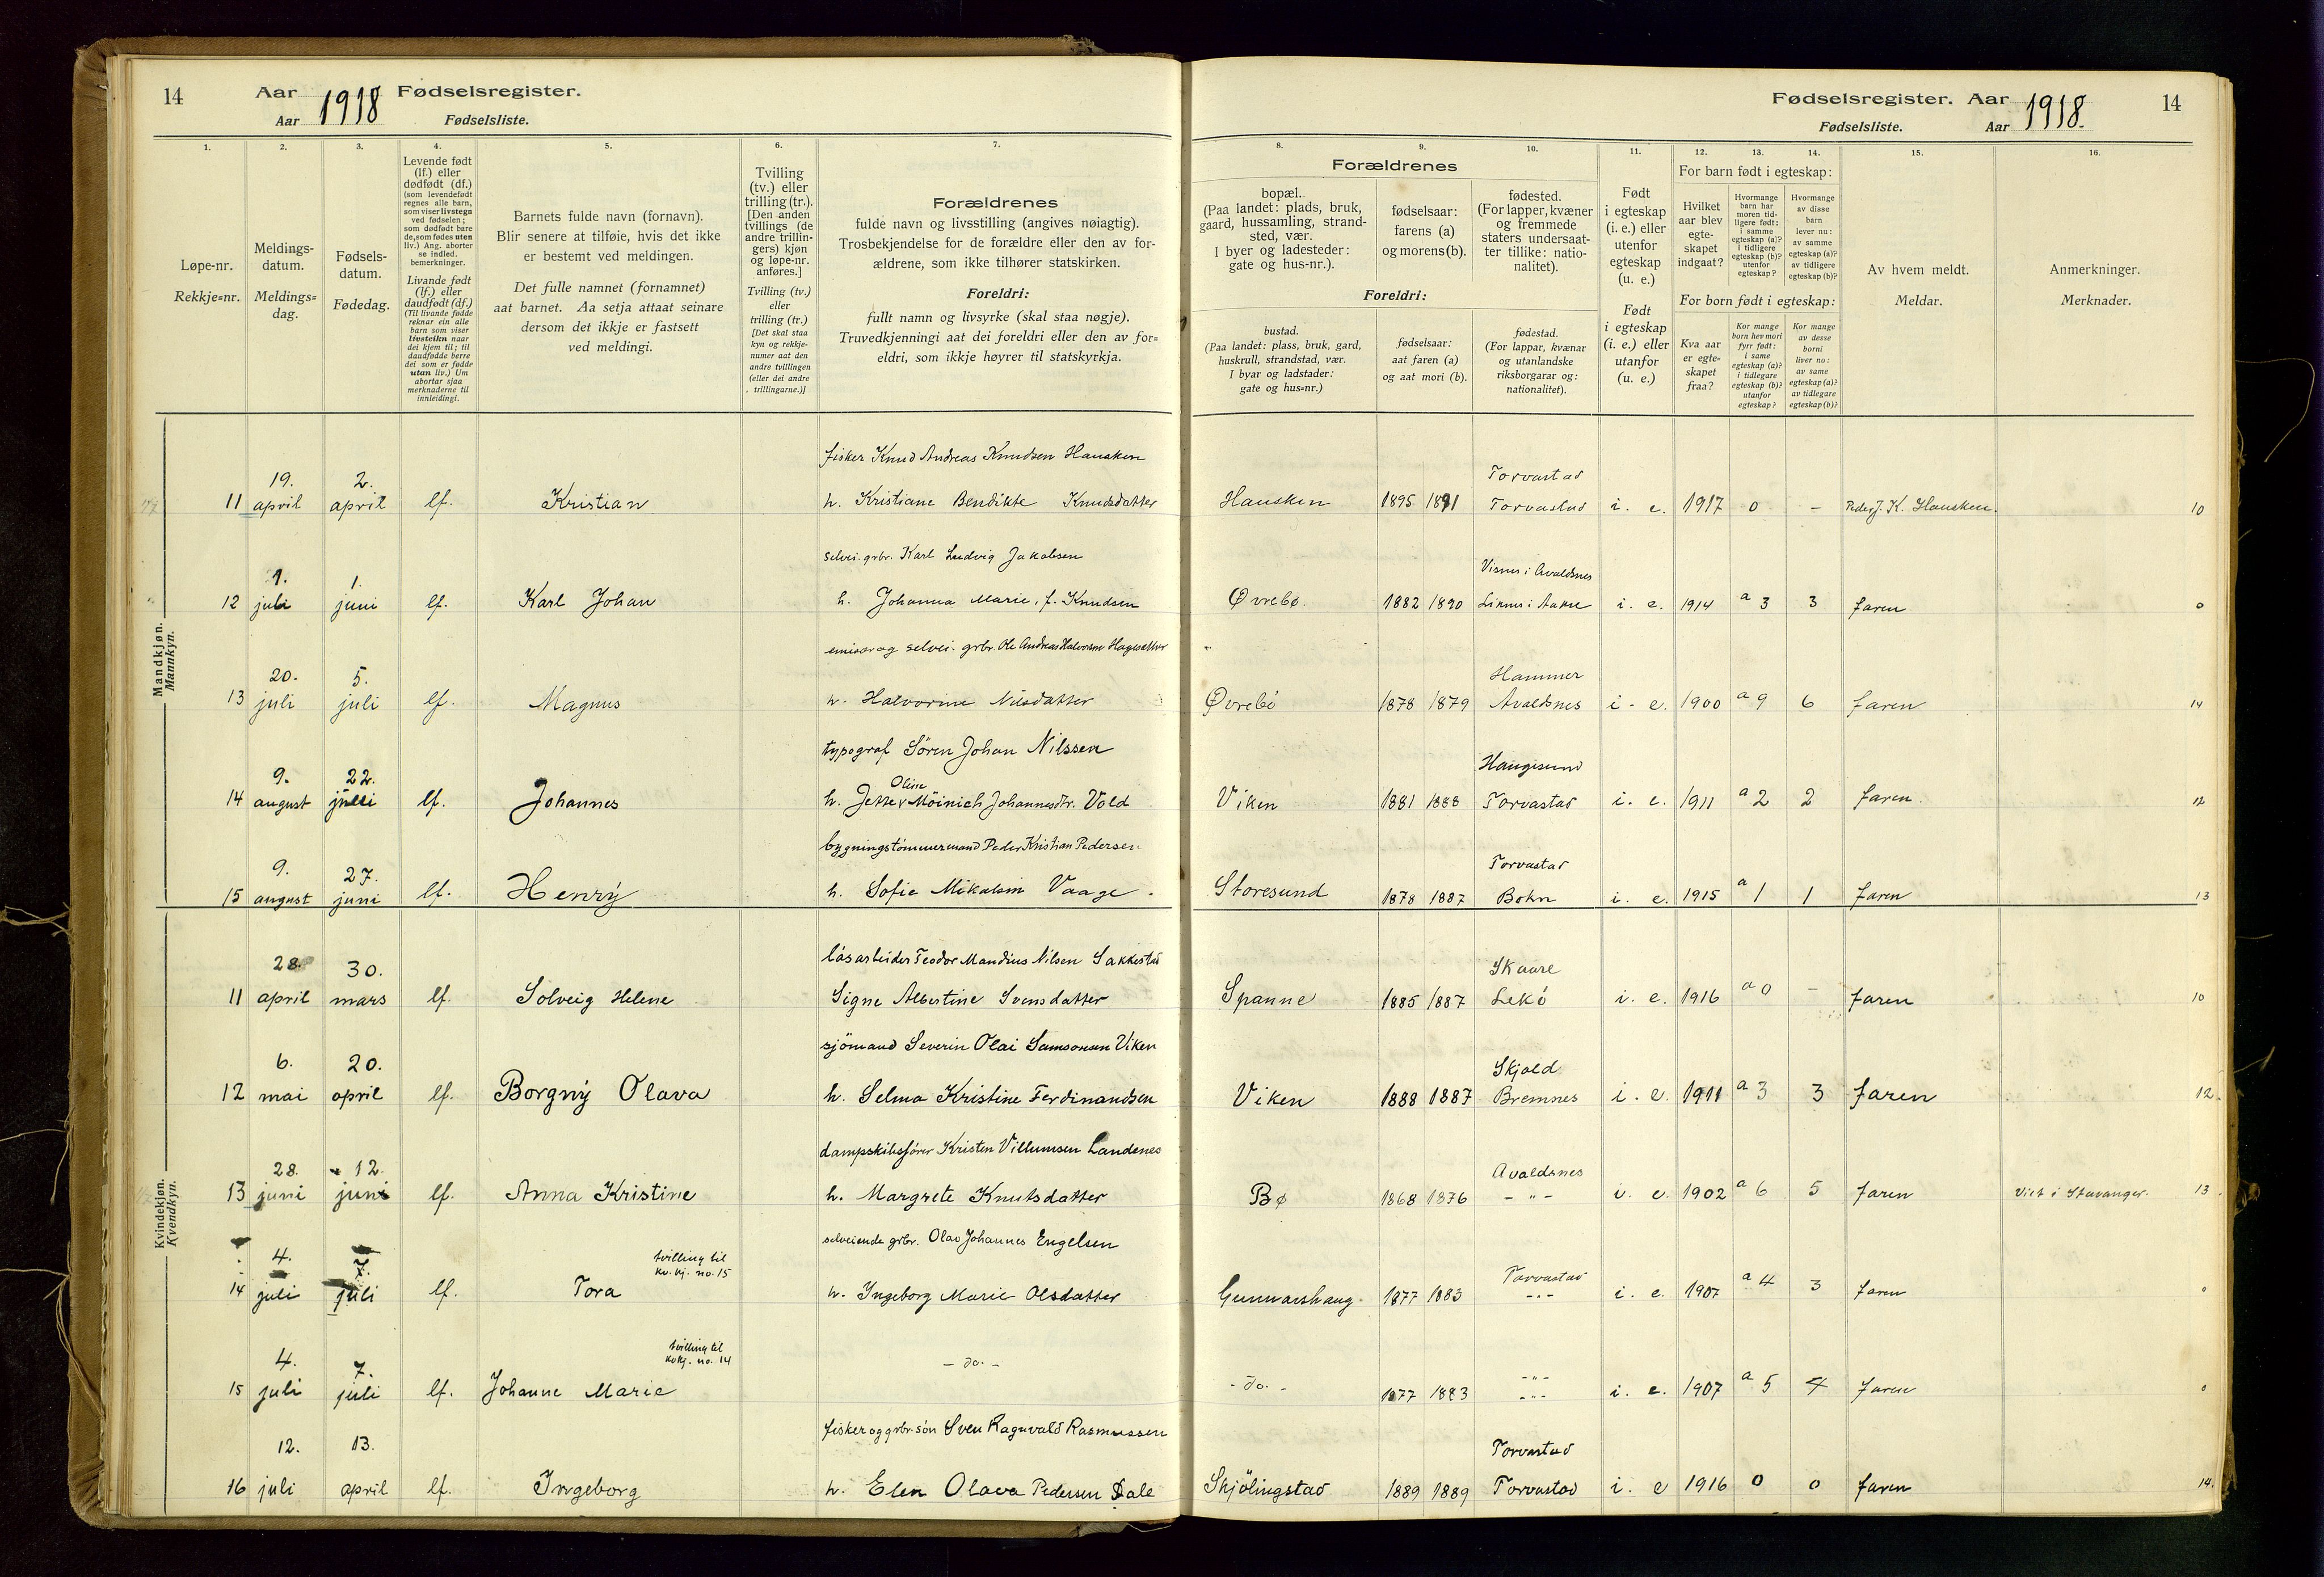 14 Aar 1918 Fødselsregister.
Aar Fødselsliste.
Fødselsregister. Aar 1918. 14
Fødselsliste. Aar
1. 2. 3. 4. 5. 6. 7. 8. 9. 10. 11. 12. 13. 14. 15. 16.
Løpe-nr.
Rekkje=nr.
Meldings-
datum.
Meldings=
dag.
Fødsels-
datum.
Fødedag.
Levende født
(lf.) eller
dødfødt (df.)
(som levendefødt
regnes alle barn,
som viser livstegn
ved fødselen;
som dødfødt bare
de, som fødes uten
liv.) Ang. aborter
se indled.
bemerkninger.
Livande født
(lf.) eller
daudfødt (df.)
(Til livande fødde
reknar ein alle
barn som viser
livsteikn naar
dei kjem til; til
daudfødde berre
dei som er fødde
utan liv.) Um
abortar sjaa
merknaderne til
innleidingi.
Barnets fulde navn (fornavn).
Blir senere at tilføie, hvis det ikke
er bestemt ved meldingen.
Det fulle namnet (fornamnet)
aat barnet. Aa setja attaat seinare
dersom det ikkje er fastsett
ved meldingi.
Tvilling
(tv.) eller
trilling (tr.).
[Den anden
tvillings (de
andre trillin-
gers) kjøn
og løpe-nr.
anføres.]
Tvilling (tv.)
eller
trilling (tr.)
[Det skal staa
kyn og rekkje-
numer aat den
andre tvillingen
(eller dei andre
trillingarne.)]
Forældrenes
fulde navn og livsstilling (angives nøiagtig).
Trosbekjendelse for de forældre eller den av for-
ældrene, som ikke tilhører statskirken.
Foreldri:
fullt namn og livsyrke (skal staa nøgje).
Truvedkjenningi aat dei foreldri eller den av for=
eldri, som ikkje høyrer til statskyrkja.
Forældrenes
bopæl.
(Paa landet: plads, bruk,
gaard, hussamling, strand-
sted, vær.
I byer og ladesteder:
gate og hus-nr.).
fødselsaar:
farens (a)
og morens (b).
fødested.
(For lapper, kvæner
og fremmede
staters undersaat-
ter tillike: natio-
nalitet).
Foreldri:
bustad.
(Paa landet: plass, bruk, gard,
huskrull, strandstad, vær.
I byar og ladstader:
gate og hus=nr.)
fødselsaar:
aat faren (a)
og aat mori (b).
fødestad.
(For lappar, kvænar
og utanlandske
riksborgarar og:
nationalitet).
Født
i egteskap
(i. e.) eller
utenfor
egteskap
(u. e.)
Født
i egteskap
(i. e.) eller
utanfor
(u. e.)
For barn født i egteskap:
Hvilket
aar blev
egte-
skapet
indgaat?
Hvormange
barn har
moren tid-
ligere født:
i samme
egteskap (a)?
i tidligere
egteskap (b)?
utenfor
egteskap?
Hvormange
av disse
barn
lever nu:
av samme
egteskap (a)?
av tidligere
egteskap (b)?
For born født i egteskap:
Kva aar
er egte-
skapet
fraa?
Kor mange
born hev mori
fyrr født:
i same
egteskap (a)?
i tidlegare
egteskap (b)?
utanfor
egteskap?
Kor mange
av desse
borni
liver no:
av same
egteskap (a)?
av tidlegare
egteskap (b)?
Av hvem meldt.
Meldar.
Anmerkninger.
Merknader.
Mandkjøn.
Mannkyn.
19. 2. fisker Knud Andreas Knudsen Hausken Torvastad
11 april april lf. Kristian h. Kristiane Bendikte Knudsdatter Hausken 1895 1891 Torvastad i. e. 1917 0 - Peder J. K. Hausken. 10
1. 1. selvei. grbr. Karl Ludvig Jakobsen Visnes i Avaldsnes
12 juli juni lf. Karl Johan h. Johanna Marie, f. Knudsen Øvrebø. 1882 1890 i. e. 1914 a 3 3 faren 0
20. 5. emissær og selvei. grbr. Ole Andreas Halvorsen Hammer
13 juli juli lf. Magnus h. Halvorine Nilsdatter Øvrebö 1878 1879 Avaldsnes i. e. 1900 a 9 6 faren 14
9. 22. typograf Sören Johan Nilssen Haugesund
14 august juli lf. Johannes h. Jette Oline Möinich Johannesdtr. Vold Viken 1881 1888 Torvastad i. e. 1911 a 2 2 faren. 12
9. 27. bygningstömmermand Peder Kristian Pedersen Torvastad
15 august juni lf. Henrÿ h. Sofie Mikalsen Vaage. Storesund 1878 1887 Bokn i. e. 1915 a 1 1 faren 13
Kvindekjøn.
Kvendkyn.
28. 30. løsarbeider Teodor Mandius Nilsen Sakkestad Skaare
11 april mars lf. Solveig Helene Signe Albertine Svensdatter Spanne 1885 1887 Lekö i. e. 1916 a 0 - faren 10
6. 20. sjömand Severin Olai Samsonsen Viken Skjold
12 mai april lf. Borgnÿ Olava h. Selma Kristine Ferdinandsen Viken 1888 1887 Bremnes i. e. 1911 a 3 3 faren 12.
28. 12. dampskibsfører Kristen Villumsen Landenes Avaldsnes
13 juni juni lf. Anna Kristine h. Margrete Knutsdatter Bø 1868 1876 - " - i. e. 1902 a 6 5 faren Viet i Stavanger. 13.
4. 7. tvilling til selveiende grbr. Olav Johannes Engelsen Torvastad
kv. kj. no. 15
14 juli juli lf. Tora h. Ingeborg Marie Olsdatter Gunnarshaug. 1877 1883 - " - i. e. 1907 a 4 3 faren 0
4. 7. tvilling til - do. - - " -
kvkj. no. 14
15 juli juli lf. Johanne Marie - do. - 1877 1883 - " - i. e. 1907 a 5 4 faren 0
12. 13. fisker og grbr. sön Sven Ragnvald Rasmussen Torvastad
16 juli april lf. Ingeborg h. Elen Olava Pedersen Dale Skjölingstad 1889 1889 Torvastad i. e 1916 0 0 faren 14.